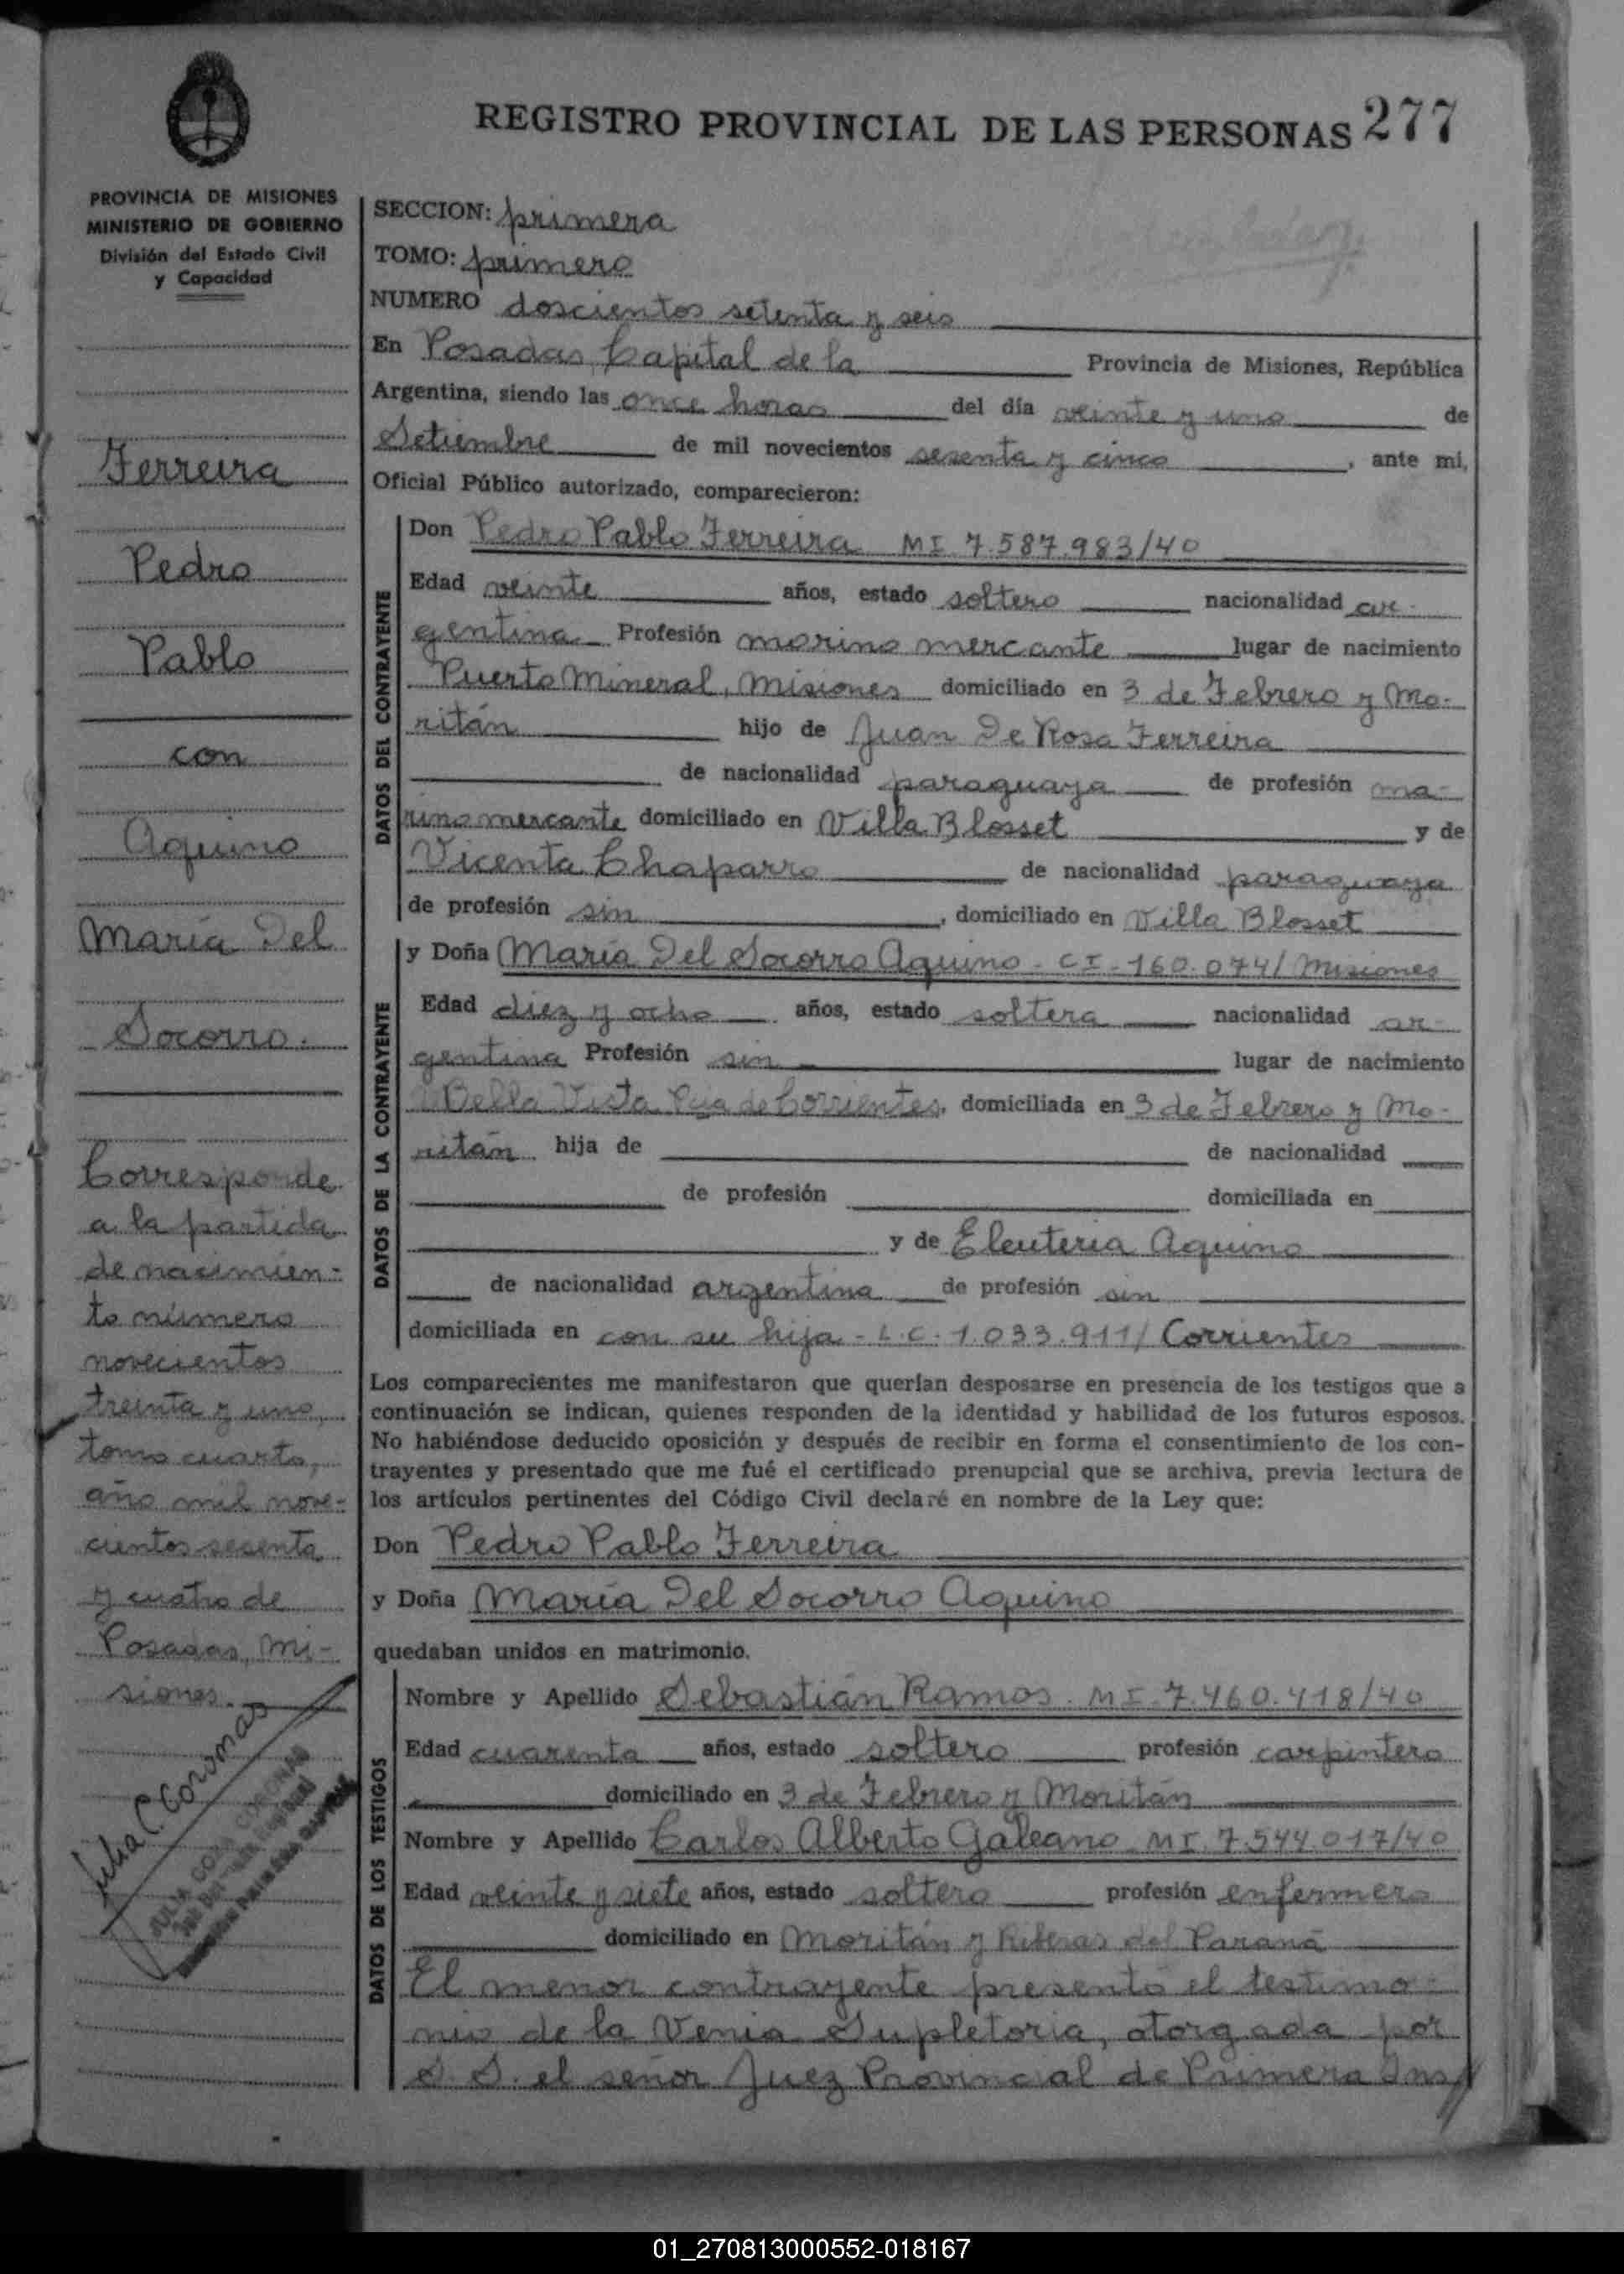 REGISTRO PROVINCIAL DE LAS PERSONAS 277
PROVINCIA DE MISIONES
MINISTERIO DE GOBIERNO
División del Estado Civil
y Capacidad
Ferreira
Pedro
Pablo
con
Aquino
María Del
Socorro.
Corresponde
a la partida
de nacimien-
to número
novecientos
treinta y uno,
tomo cuarto,
año mil nove-
cientos sesenta
y cuatro de
Posadas, Mi-
siones.
Julia C. Coronas
JULIA CORONAS
SECCION: primera
TOMO: primero
NUMERO doscientos setenta y seis
En Posadas, Capital de la Provincia de Misiones, República
Argentina, siendo las once horas del día veinte y uno de
Setiembre de mil novecientos sesenta y cinco, ante mi,
Oficial Público autorizado, comparecieron:
DATOS DEL CONTRAYENTE
Don Pedro Pablo Ferreira MI. 7.587.983/40
Edad veinte años, estado soltero nacionalidad ar-
gentina Profesión marino mercante lugar de nacimiento
Puerto Mineral, Misiones domiciliado en 3 de Febrero y Mo-
ritán hijo de Juan De Rosa Ferreira
de nacionalidad paraguaya de profesión ma-
rino mercante domiciliado en Villa Blosset y de
Vicenta Chaparro de nacionalidad paraguaya
de profesión sin, domiciliado en Villa Blosset
DATOS DE LA CONTRAYENTE
y Doña María Del Socorro Aquino - CI - 160.074/ Misiones
Edad diez y ocho años, estado soltera nacionalidad ar-
gentina Profesión sin lugar de nacimiento
Bella Vista Pcia de Corrientes, domiciliada en 3 de Febrero y Mo-
ritán hija de de nacionalidad
de profesión domiciliada en
y de Eleuteria Aquino
de nacionalidad argentina de profesión sin
domiciliada en con su hija - L.C. 1.033.911/ Corrientes
Los comparecientes me manifestaron que querían desposarse en presencia de los testigos que a
continuación se indican, quienes responden de la identidad y habilidad de los futuros esposos.
No habiéndose deducido oposición y después de recibir en forma el consentimiento de los con-
trayentes y presentado que me fué el certificado prenupcial que se archiva, previa lectura de
los artículos pertinentes del Código Civil declaré en nombre de la Ley que:
Don Pedro Pablo Ferreira
y Doña María Del Socorro Aquino
quedaban unidos en matrimonio.
DATOS DE LOS TESTIGOS
Nombre y Apellido Sebastián Ramos. MI. 7.460.418/40
Edad cuarenta años, estado soltero profesión carpintero
domiciliado en 3 de Febrero y Moritán
Nombre y Apellido Carlos Alberto Galeano MI. 7.544.017/40
Edad veinte y siete años, estado soltero profesión enfermero
domiciliado en Moritán y Riberas del Paraná
El menor contrayente presentó el testimo-
nio de la Venia Supletoria, otorgada por
S. S. el señor Juez Provincial de Primera Ins
01_270813000552-018167